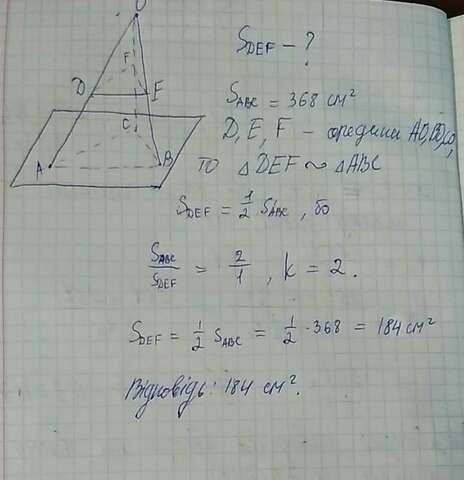 O
S_DEF - ?
F
D
E
S_ABC = 368 см²
C
D, E, F - середини AO, BO, CO,
A
B
то △DEF ~ △ABC
S_DEF = 1/2 S_ABC, бо
S_ABC/S_DEF = 2/1, k = 2.
S_DEF = 1/2 S_ABC = 1/2 · 368 = 184 см²
Відповідь: 184 см².